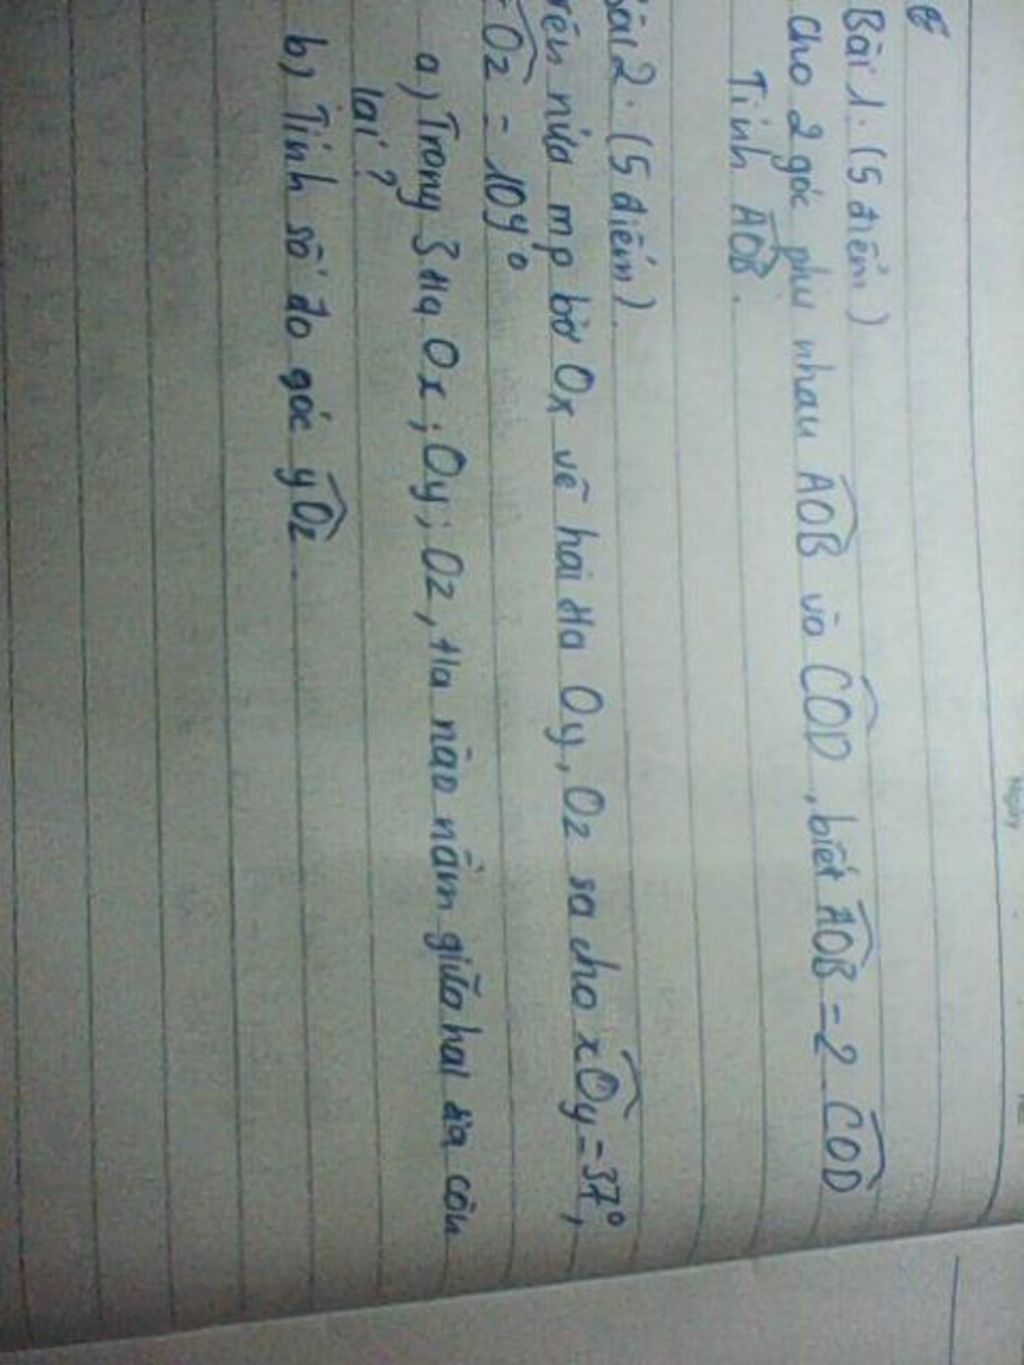 Bài 1. (5 điểm)
Cho 2 góc phụ nhau AOB và COD, biết AOB = 2 COD
Tính AOB.
Bài 2. (5 điểm).
rên nửa mp bờ Ox vẽ hai tia Oy, Oz sa cho xOy = 37°,
xOz = 109°
a, Trong 3 tia Ox; Oy; Oz, tia nào nằm giữa hai tia còn
lại?
b) Tính số đo góc yOz.
Ngày